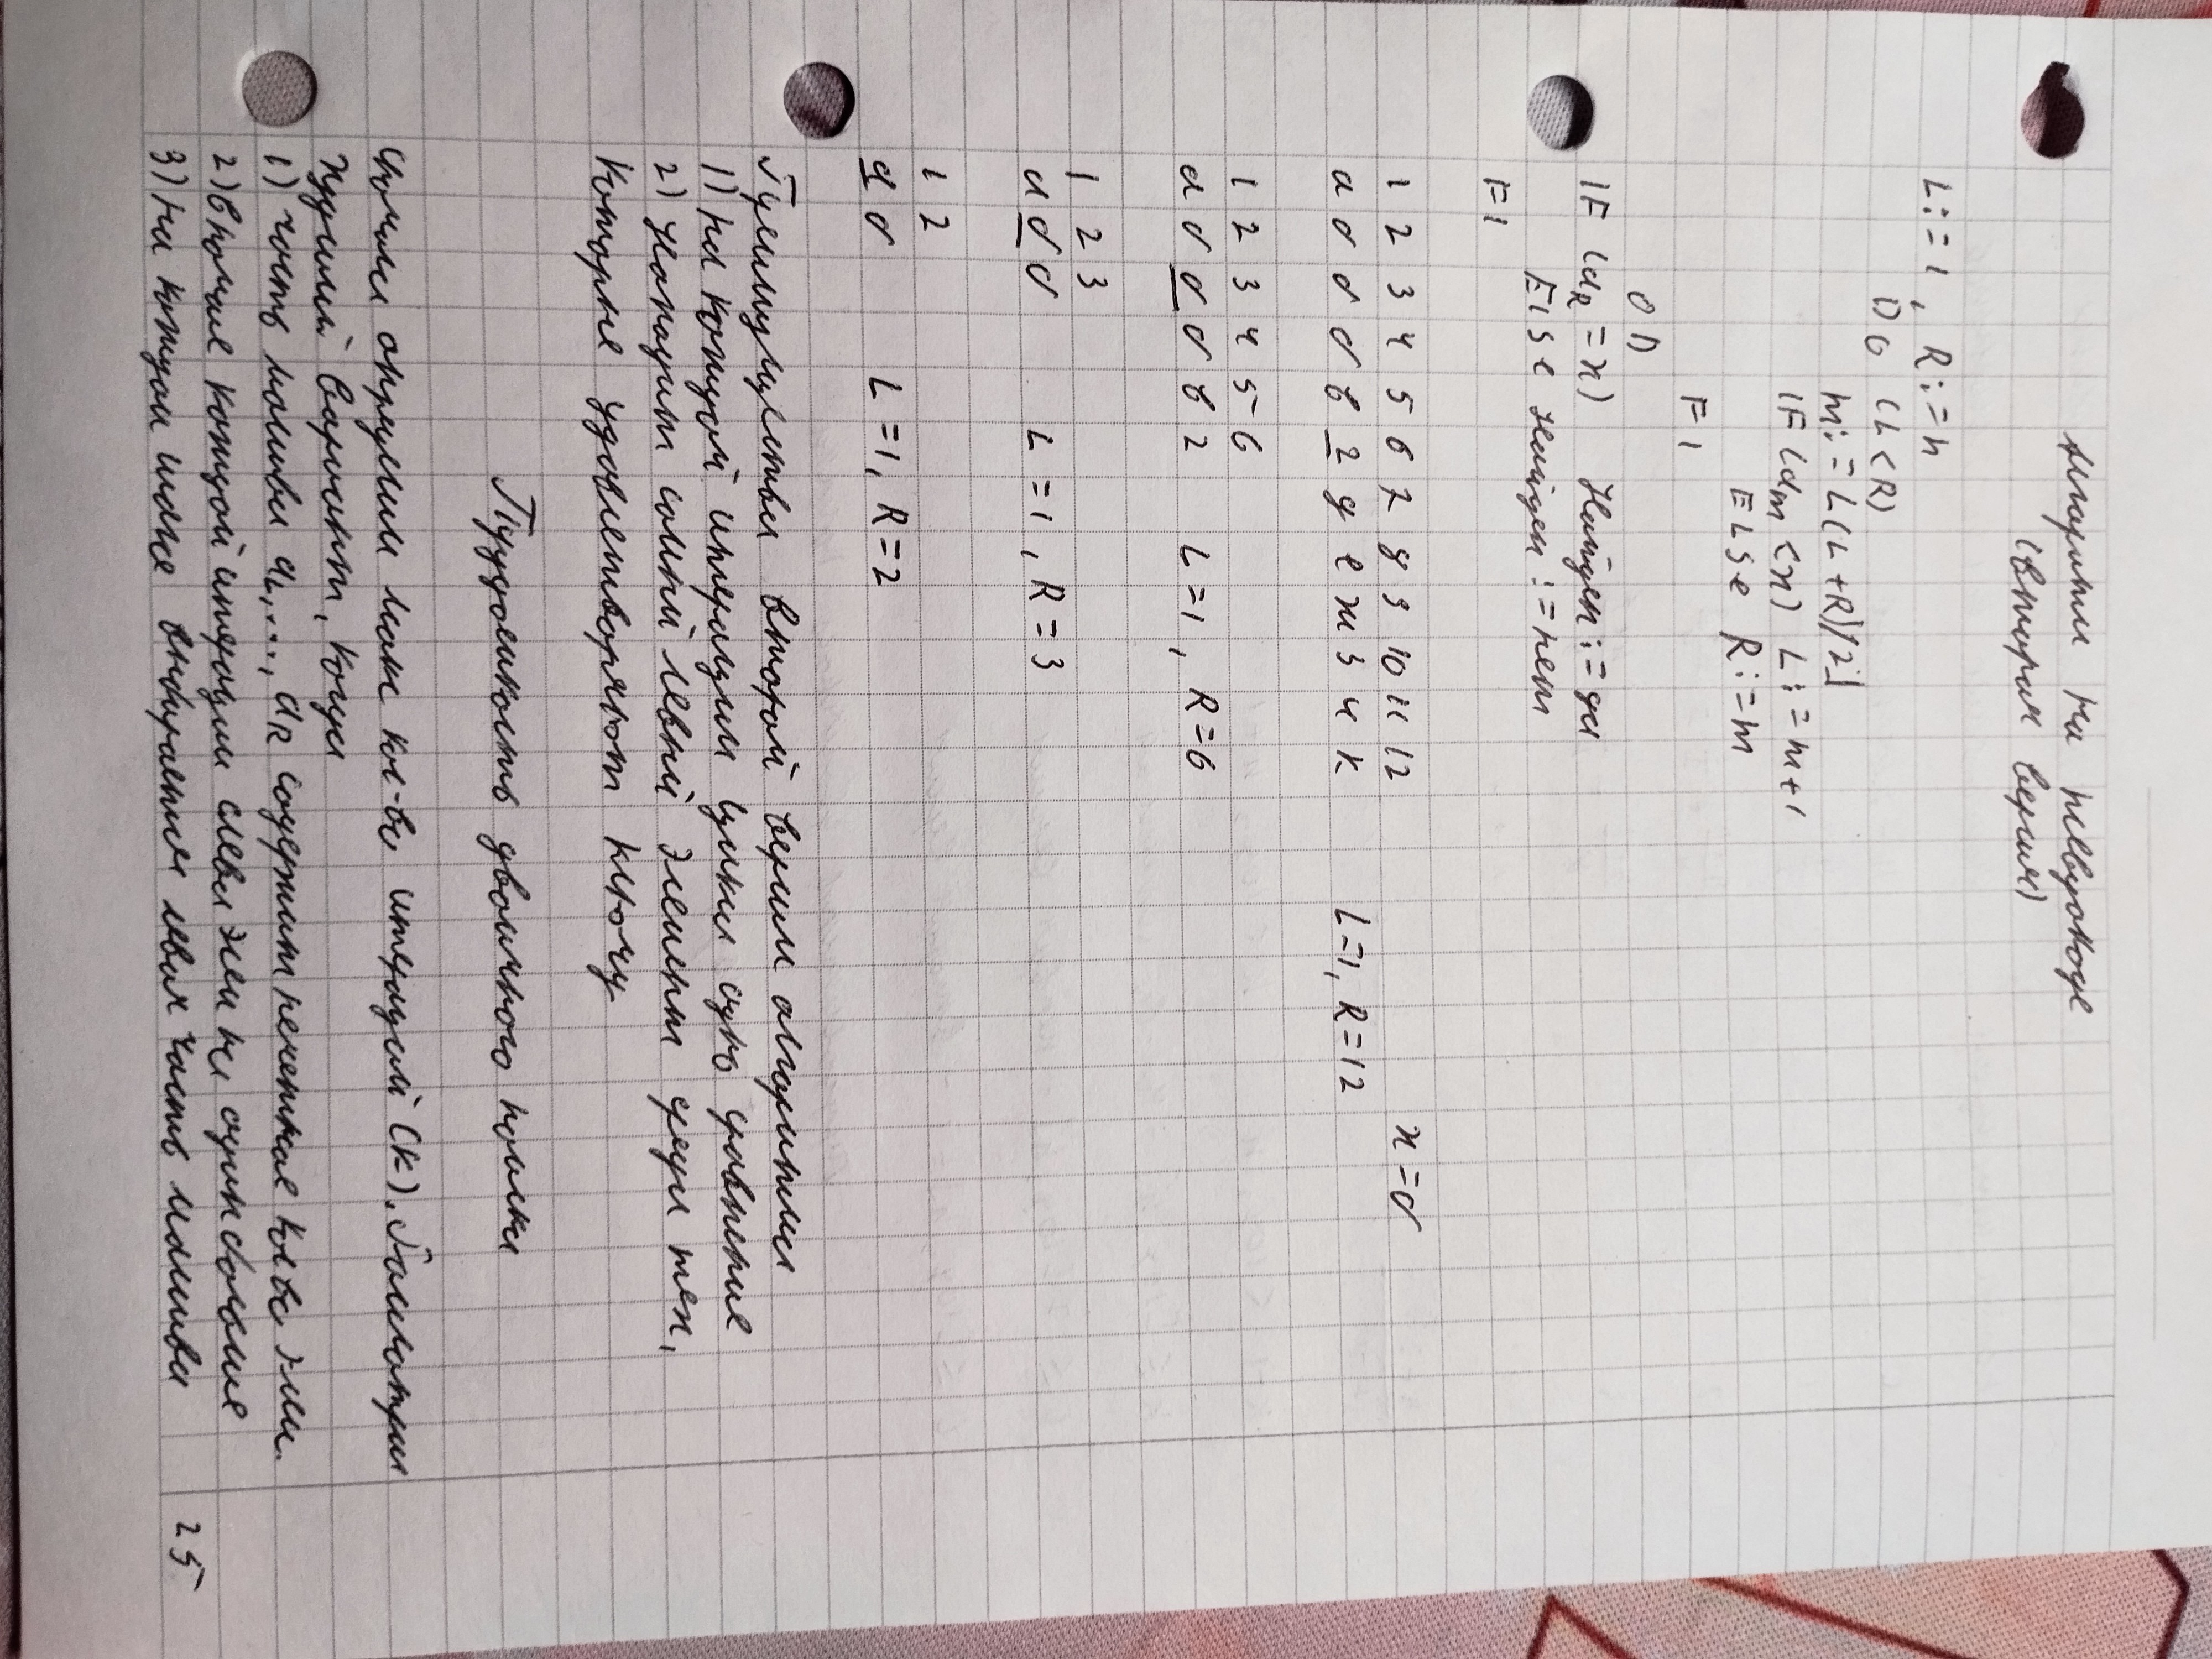 Алгоритм на псевдокоде
(вторая версия)
L:=1, R:=n
DO (L<R)
m:=⌊(L+R)/2⌋
IF (am<x) L:=m+1
ELSE R:=m
FI
OD
IF (aR=x) Найден:=да
ELSE Найден:=нет
FI
1 2 3 4 5 6 7 8 9 10 11 12 x=б
а б б б в г д е ж з и к L=1, R=12
1 2 3 4 5 6
а б б б в г L=1, R=6
1 2 3
а б б L=1, R=3
1 2
а б L=1, R=2
Преимущества второй версии алгоритма
1) на каждой итерации цикла одно сравнение
2) Находит самый левый элемент среди тех,
которые удовлетворяют ключу
Трудоемкость двоичного поиска
Сначала определим макс кол-во итераций (K). Рассмотрим
худший вариант, когда
1) часть массива aL,..., aR содержит нечетное кол-во элем.
2) в начале каждой итерации слева элем на один больше
3) на каждом шаге выбирается левая часть массива
25